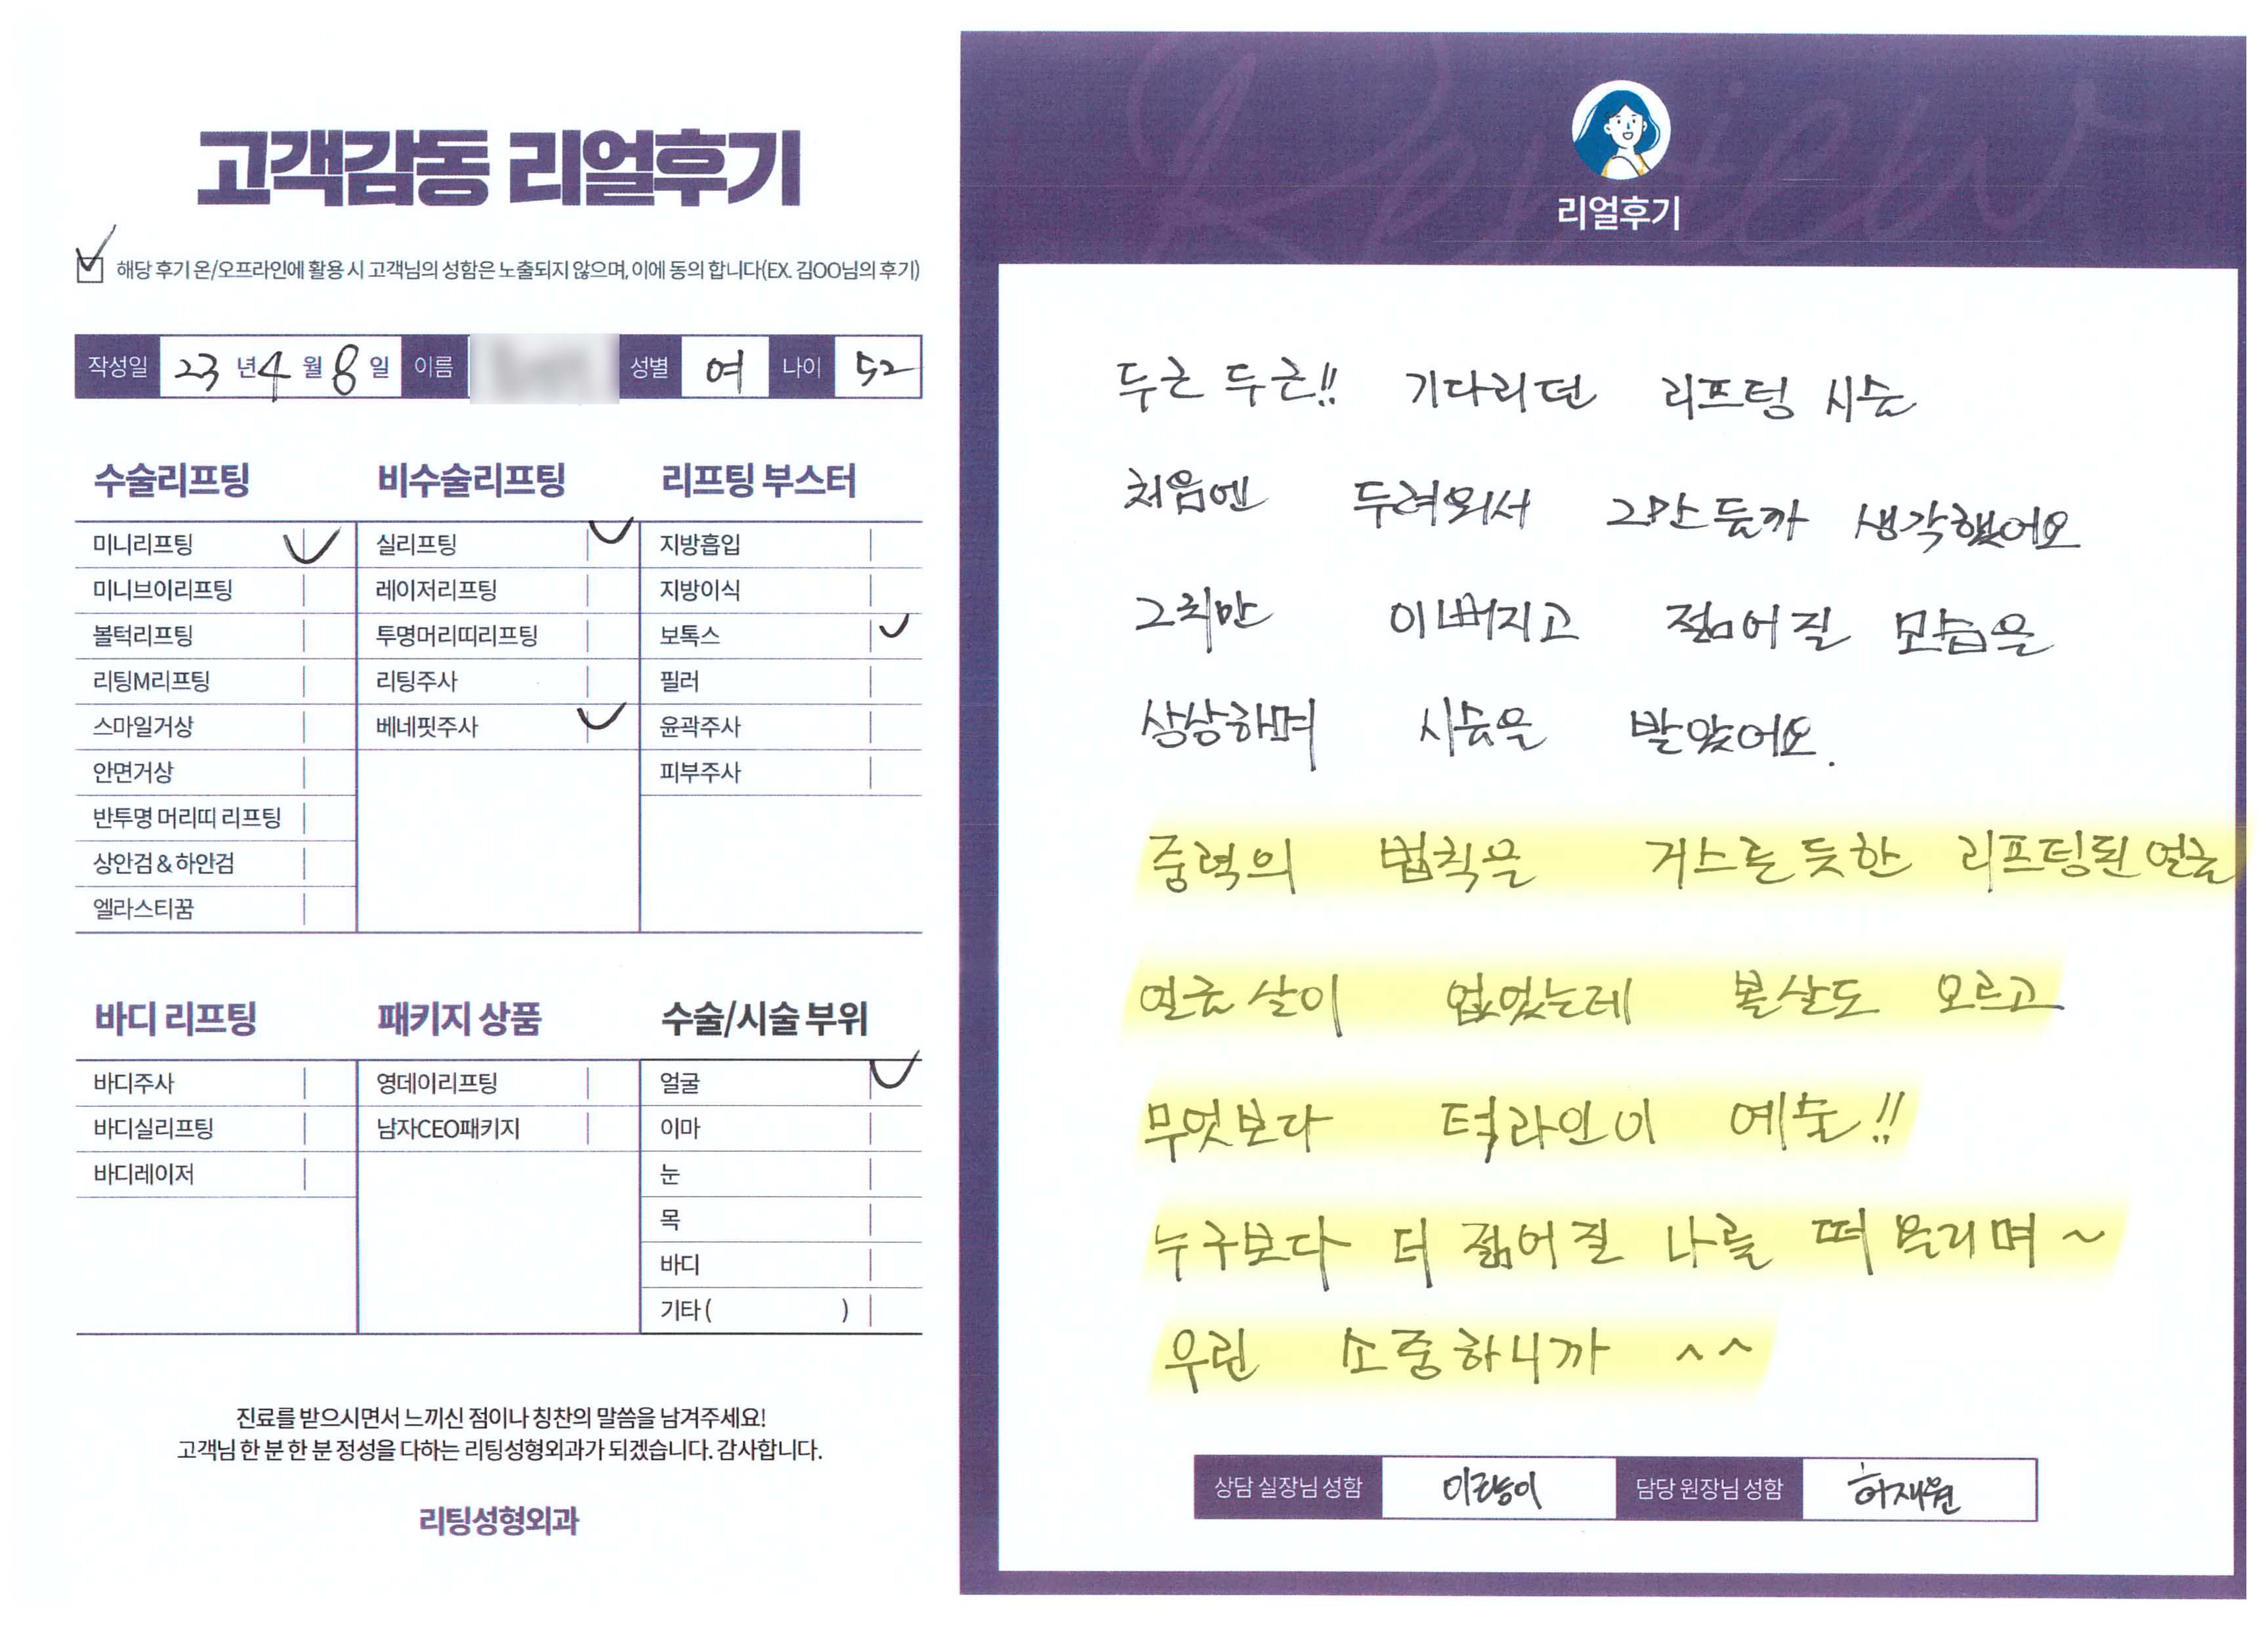 고객감동 리얼후기
해당 후기 온/오프라인에 활용 시 고객님의 성함은 노출되지 않으며, 이에 동의 합니다(EX. 김OO님의 후기)
작성일 23 년 4 월 8 일 이름 성별 여 나이 52
수술리프팅
미니리프팅
미니브이리프팅
볼턱리프팅
리팅M리프팅
스마일거상
안면거상
반투명 머리띠 리프팅
상안검 & 하안검
엘라스티꿈
비수술리프팅
실리프팅
레이저리프팅
투명머리띠리프팅
리팅주사
베네핏주사
리프팅 부스터
지방흡입
지방이식
보톡스
필러
윤곽주사
피부주사
바디 리프팅
바디주사
바디실리프팅
바디레이저
패키지 상품
영데이리프팅
남자CEO패키지
수술/시술 부위
얼굴
이마
눈
목
바디
기타 ( )
진료를 받으시면서 느끼신 점이나 칭찬의 말씀을 남겨주세요!
고객님 한 분 한 분 정성을 다하는 리팅성형외과가 되겠습니다. 감사합니다.
리팅성형외과
Review
리얼후기
두근 두근!! 기다리던 리프팅 시술
처음엔 두려워서 그만 둘까 생각했어요
그치만 이뻐지고 젊어질 모습을
상상하며 시술을 받았어요.
중력의 법칙을 거스른듯한 리프팅된 얼굴
얼굴 살이 없었는데 볼살도 오르고
무엇보다 턱라인이 예술!!
누구보다 더 젊어질 나를 떠 올리며 ~
우린 소중하니까 ^^
상담 실장님 성함 담당 원장님 성함 하재원